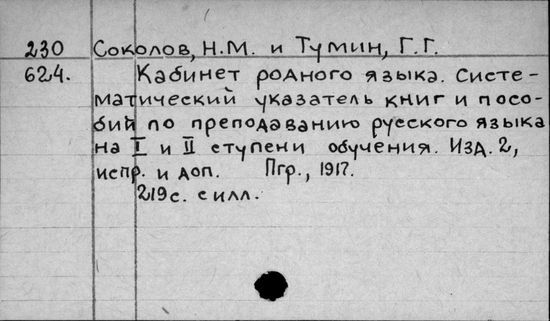 230 Соколов, Н.М. и Тумин, Г.Г.
624. Кабинет родного языка. Систе-
матический указатель книг и посо-
бий по преподаванию русского языка
на I и II ступени обучения. Изд. 2,
испр. и доп. Пгр., 1917.
219с. с илл.